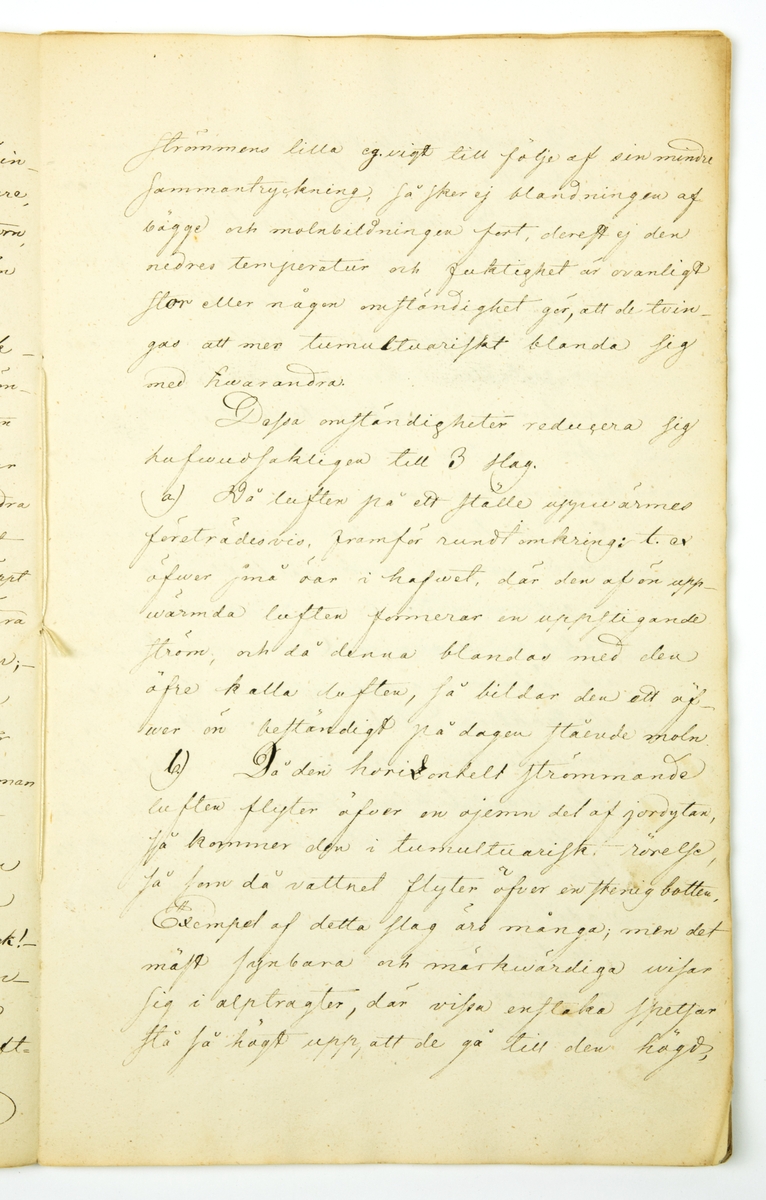 strömmens lilla eg. vigt till följe af sin mindre
sammantryckning, så sker ej blandningen af
bägge och molnbildningen fort, derest ej den
nedres temperatur och fuktighet är ovanligt
stor eller någon omständighet gör, att de tvin-
gas att mer tumultuariskt blanda sig
med hwarandra.
Dessa omständigheter reducera sig
hufwudsakligen till 3 slag.
a) Då luften på ett ställe uppwärmes
företrädesvis framför rundt omkring; t. ex
öfwer små öar i hafwet, där den af ön upp-
wärmda luften formerar en uppstigande
ström, och då denna blandas med den
öfre kalla luften, så bildar den ett öf-
wer ön beständigt på dagen stående moln
b) Då den horizontelt strömmande
luften flyter öfver en ojemn del af jordytan,
så kommer den i tumultuarisk rörelse,
så som då vattnet flyter öfver en stenig botten.
Exempel af detta slag äro många; men det
mäst synbara och märkwärdiga wisar
sig i alptragter, där vissa enstaka spetsar
stå så högt upp, att de gå till den högd,